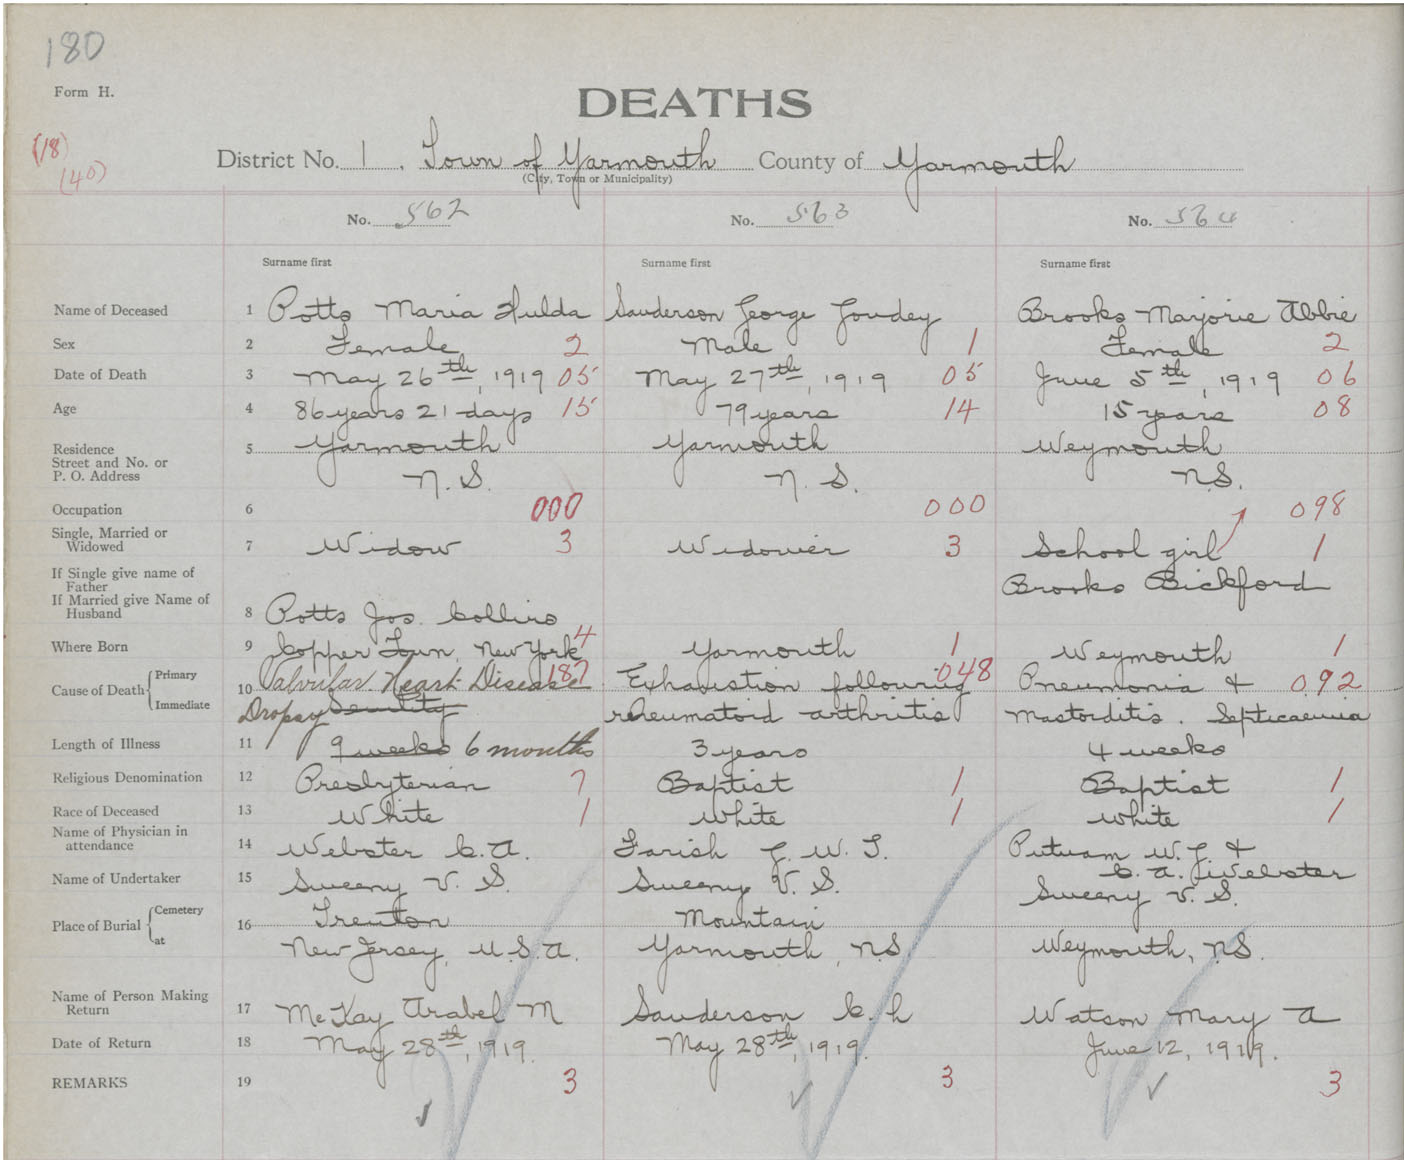 180
Form H.
DEATHS
(18)
(40)
District No. 1. Town of Yarmouth County of Yarmouth
(City, Town or Municipality)
No. 562 No. 563 No. 564
Surname first Surname first Surname first
Name of Deceased 1 Potts Maria Hulda Sanderson George Goudey Brooks Marjorie Abbie
Sex 2 Female 2 Male 1 Female 2
Date of Death 3 May 26th, 1919 05 May 27th, 1919 05 June 5th, 1919 06
Age 4 86 years 21 days 15 79 years 14 15 years 08
Residence 5 Yarmouth Yarmouth Weymouth
Street and No. or
P. O. Address N. S. N. S. N.S.
Occupation 6 000 000 098
Single, Married or
Widowed 7 Widow 3 Widower 3 School girl 1
If Single give name of
Father Brooks Bickford
If Married give Name of
Husband 8 Potts Jos. Collins
Where Born 9 Copper Tun, New York 4 Yarmouth 1 Weymouth 1
Cause of Death Primary 10 Valvular Heart Disease 187 Exhaustion following 048 Pneumonia & 092
Immediate Dropsy Senility rheumatoid arthritis Mastorditis. Septicaemia
Length of Illness 11 9 weeks 6 months 3 years 4 weeks
Religious Denomination 12 Presbyterian 7 Baptist 1 Baptist 1
Race of Deceased 13 White 1 White 1 White 1
Name of Physician in
attendance 14 Webster C. A. Farish G. W. T. Putnam W. G. &
C. A. Webster
Name of Undertaker 15 Sweeny V. S. Sweeny V. S. Sweeny V. S.
Place of Burial Cemetery 16 Trenton Mountain
at New Jersey, U.S.A. Yarmouth, N.S. Weymouth, N.S.
Name of Person Making
Return 17 McKay Arabel M Sanderson C. h Watson Mary A
Date of Return 18 May 28th, 1919. May 28th, 1919. June 12, 1919.
REMARKS 19 3 3 3